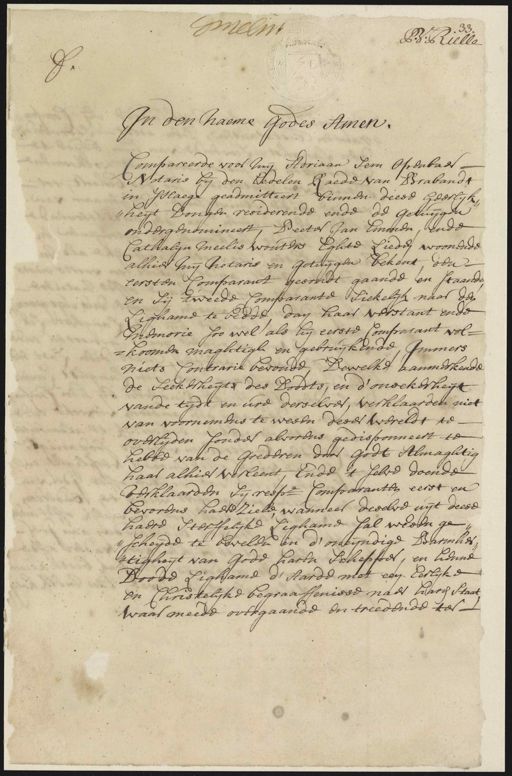 33.
In den Naeme Godes Amen.
Compareerde voor mij Adriaan Openbaer
Notaris bij den Edelen Raede van Brabandt
in s'Haege geadmitteert binnen deese Heerlijk-
heyt Dongen resideerende ende de Getuijgen
ondergenomineert, Peeter Jan Emmen, ende
Cathalijn Meelis Wouters Eghte Lieden woonende
alhier mij Notaris en getuijgen bekent, den
eersten Comparant gesondt gaande en staande,
en sij tweede Comparante Siekelijk naer den
Lighame te bedde, dog haar verstant ende
memorie soo wel als hij eerste Comparant vol-
koomen maghtigh en gebruijkende, Immers
niets Contrarie bevonde, Dewelke aanmerkende
de Seekerheyt des Doodts, en d'onseekerheyt
vande tijdt en ure derselver, verklaarden niet
van voornemens te weesen deese Wereldt te
overlijden sonder alvorens gedisponeert te
hebbe van de Goederen door Godt Almaghtig
haar alhier verleent, Ende 't selve doende
verklaarden sij respe. Comparanten eerst en
bevorens haere Ziele, wanneer deselve uijt deese
haere Sterffelijke Lighame sal weesen ge-
scheijde te bevelle in d'oneijndige Barmher-
tigheyt van Godt haeren Schepper, en hunne
Doode Lighame d'Aarde met een Eerlijke
en Christelijke begraaffenisse naer haere Staat
waar meede overgaande en treedende ter